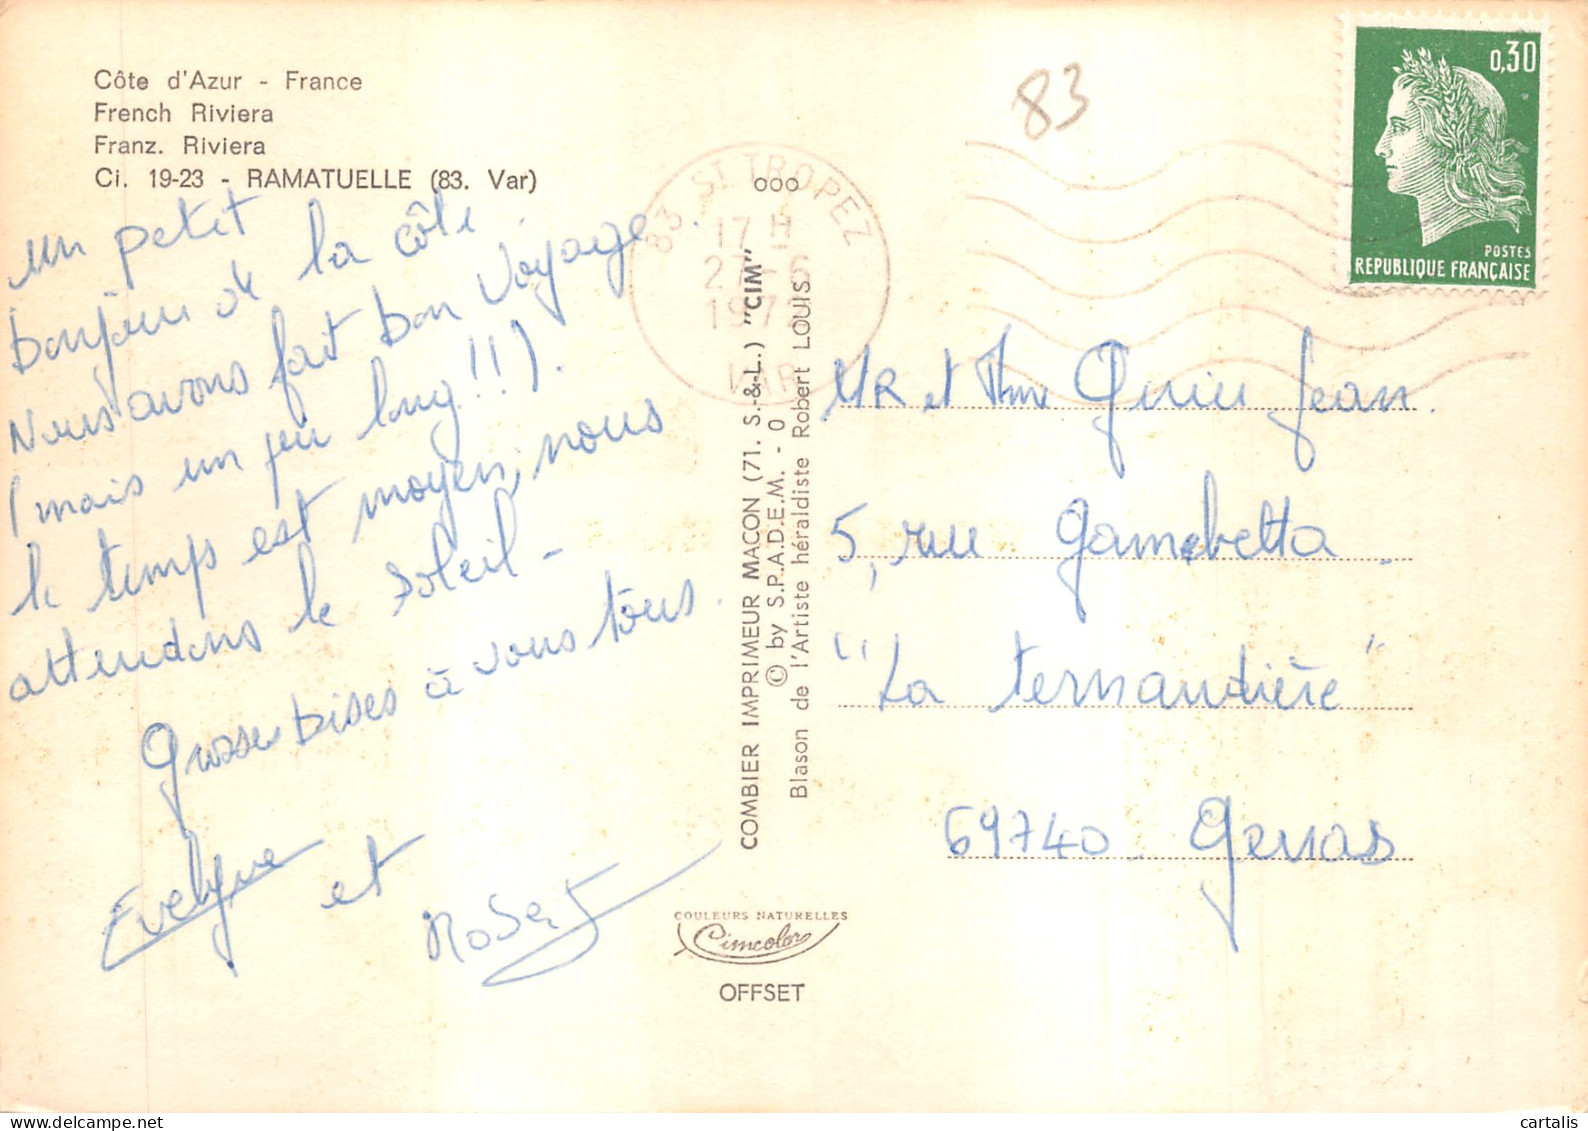 Côte d'Azur - France
French Riviera
Franz. Riviera
Ci. 19-23 - RAMATUELLE (83. Var)
un petit
bonjour de la côte.
Nous avons fait bon voyage
(mais un peu long!!).
le temps est moyen, nous
attendons le soleil -
Grosses bises à vous tous.
Evelyne et Robert
COMBIER IMPRIMEUR MACON (71. S.-&-L.) "CIM"
© by S.P.A.D.E.M. - O
Blason de l'Artiste héraldiste Robert LOUIS
COULEURS NATURELLES
Cimcolor
OFFSET
ooo
83 ST TROPEZ
17 H
27-6
VAR
83
0,30
POSTES
REPUBLIQUE FRANÇAISE
MR et Mme Jean.
5, rue Gambetta
"La Ternandière"
69740 Genas
cartalis